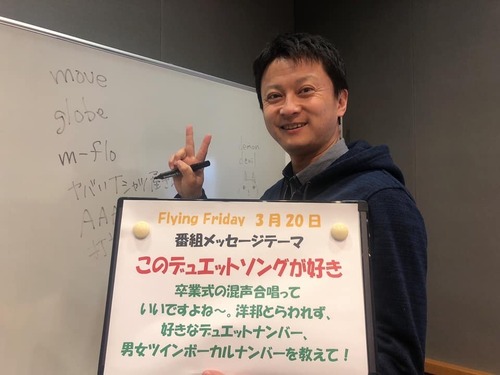 move
globe
m-flo
ヤバいTシャツ屋
AA
Flying Friday 3月20日
番組メッセージテーマ
このデュエットソングが好き
卒業式の混声合唱って
いいですよね〜。洋邦とらわれず、
好きなデュエットナンバー、
男女ツインボーカルナンバーを教えて！